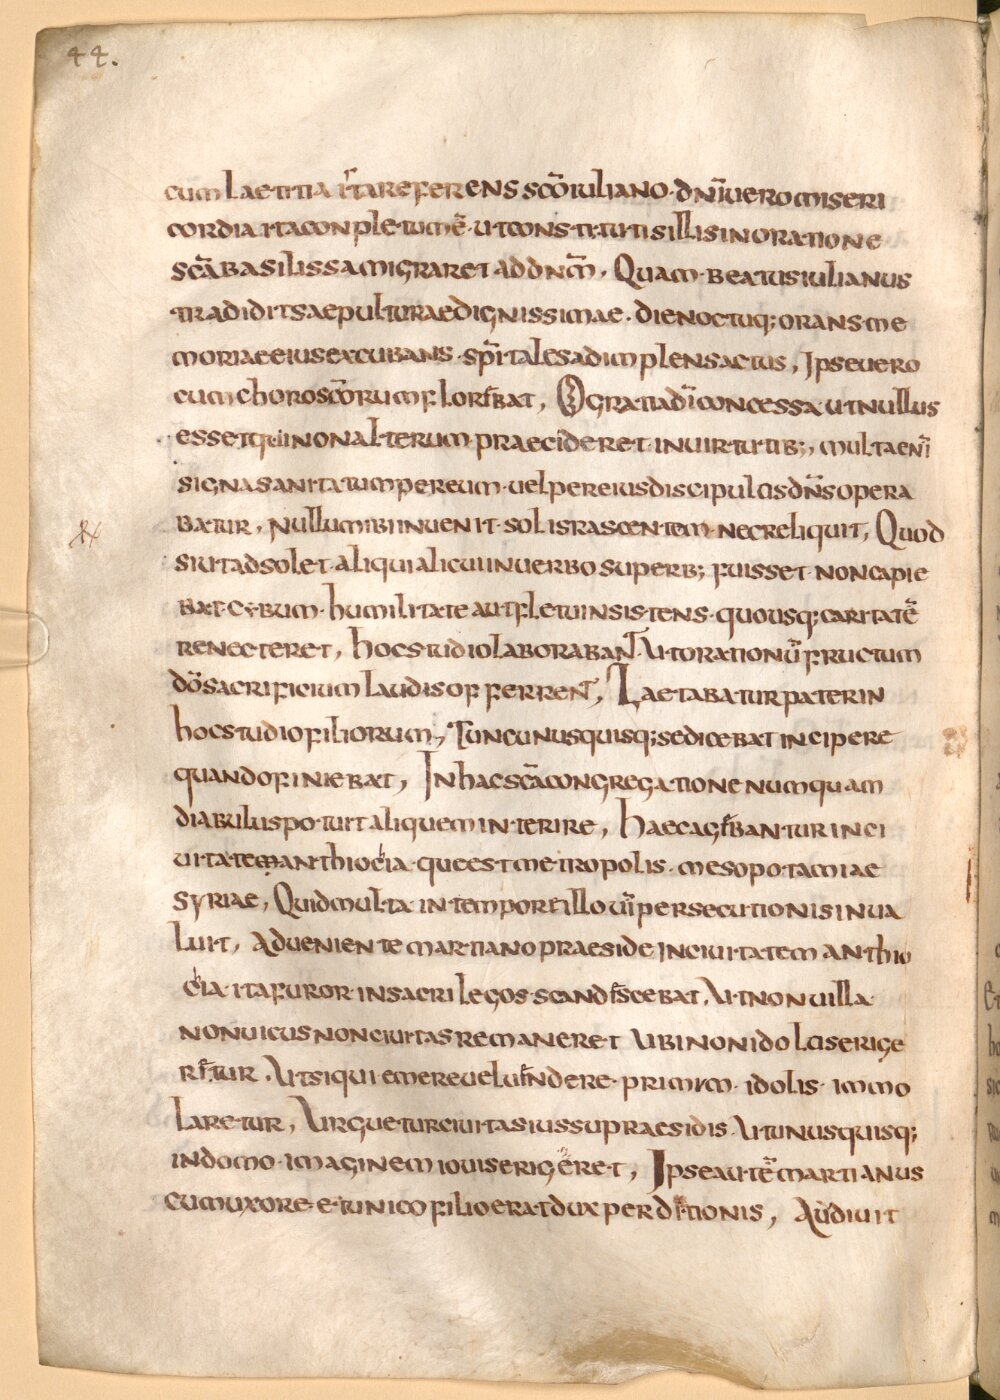 44.
cum laetitia ita referens scō iuliano · dnī uero miseri
cordia ita conpletum ē · ut constitutis illis in oratione
scā basilissa migraret ad dnm̄ · Quam · beatus iulianus
tradidit saepulturae dignissimae · die noctuq; orans · me
moriae eius excubans · spītales adimplens actus, Ipse uero
cum choros scōrum florebat, O gratia dī concessa ut nullus
esset qui non alterum praecideret in uirtutib;, multa enī
signa sanitatum per eum · uel per eius discipulos dn̄s opera
batur · Nullum ibi inuenit · sol irascentem · nec reliquit, Quod
si ut adsolet · aliqui alicui in uerbo superb; fuisset · non capie
bat · cybum · humilitate aut fletu insistens · quousq; caritatē
renecteret, hoc studio laboraban̄t Ut orationū fructum
dō sacrificium laudis offerren̄t, Laetabatur pater in
hoc studio filiorum, Tunc unusquisq; se dicebat incipere
quando finiebat, In hac scā congregatione numquam
diabulus potuit aliquem interire, haec agebantur in ci
uitatem anthiochia · que est metropolis · mesopotamiae
syriae, Quid multa · in tempore illo uīs persecutionis inua
luit, adueniente martiano praeside in ciuitatem anthio
chia · ita furor · in sacrilegos · scandescebat, Ut non uilla ·
non uicus non ciuitas remaneret Ubi non idolus erige
retur · Ut si qui emere uel uendere · primum · idolis · immo
laretur, Urguetur ciuitas iussu praesidis · Ut unusquisq;
in domo · imaginem iouis erigeret, Ipse autē martianus
cum uxore · et unico filio erat dux perditionis, Audiuit